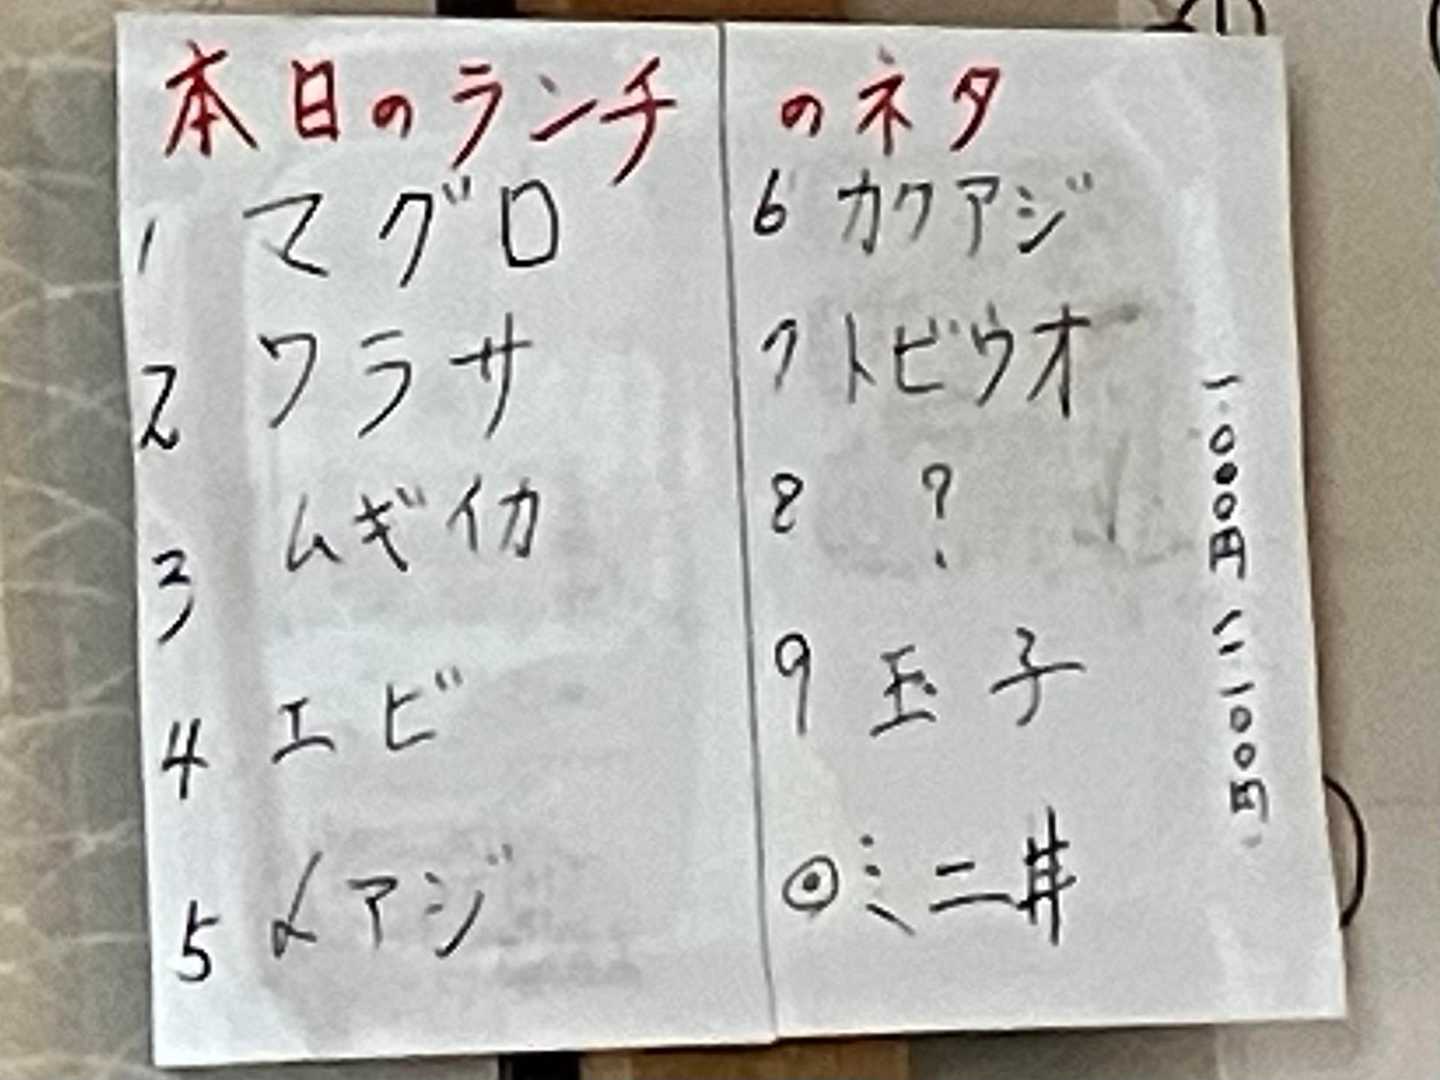 本日のランチのネタ
1 マグロ
2 ワラサ
3 ムギイカ
4 エビ
5 〆アジ
6 カクアジ
7 トビウオ
8 ?
9 玉子
◎ミニ丼